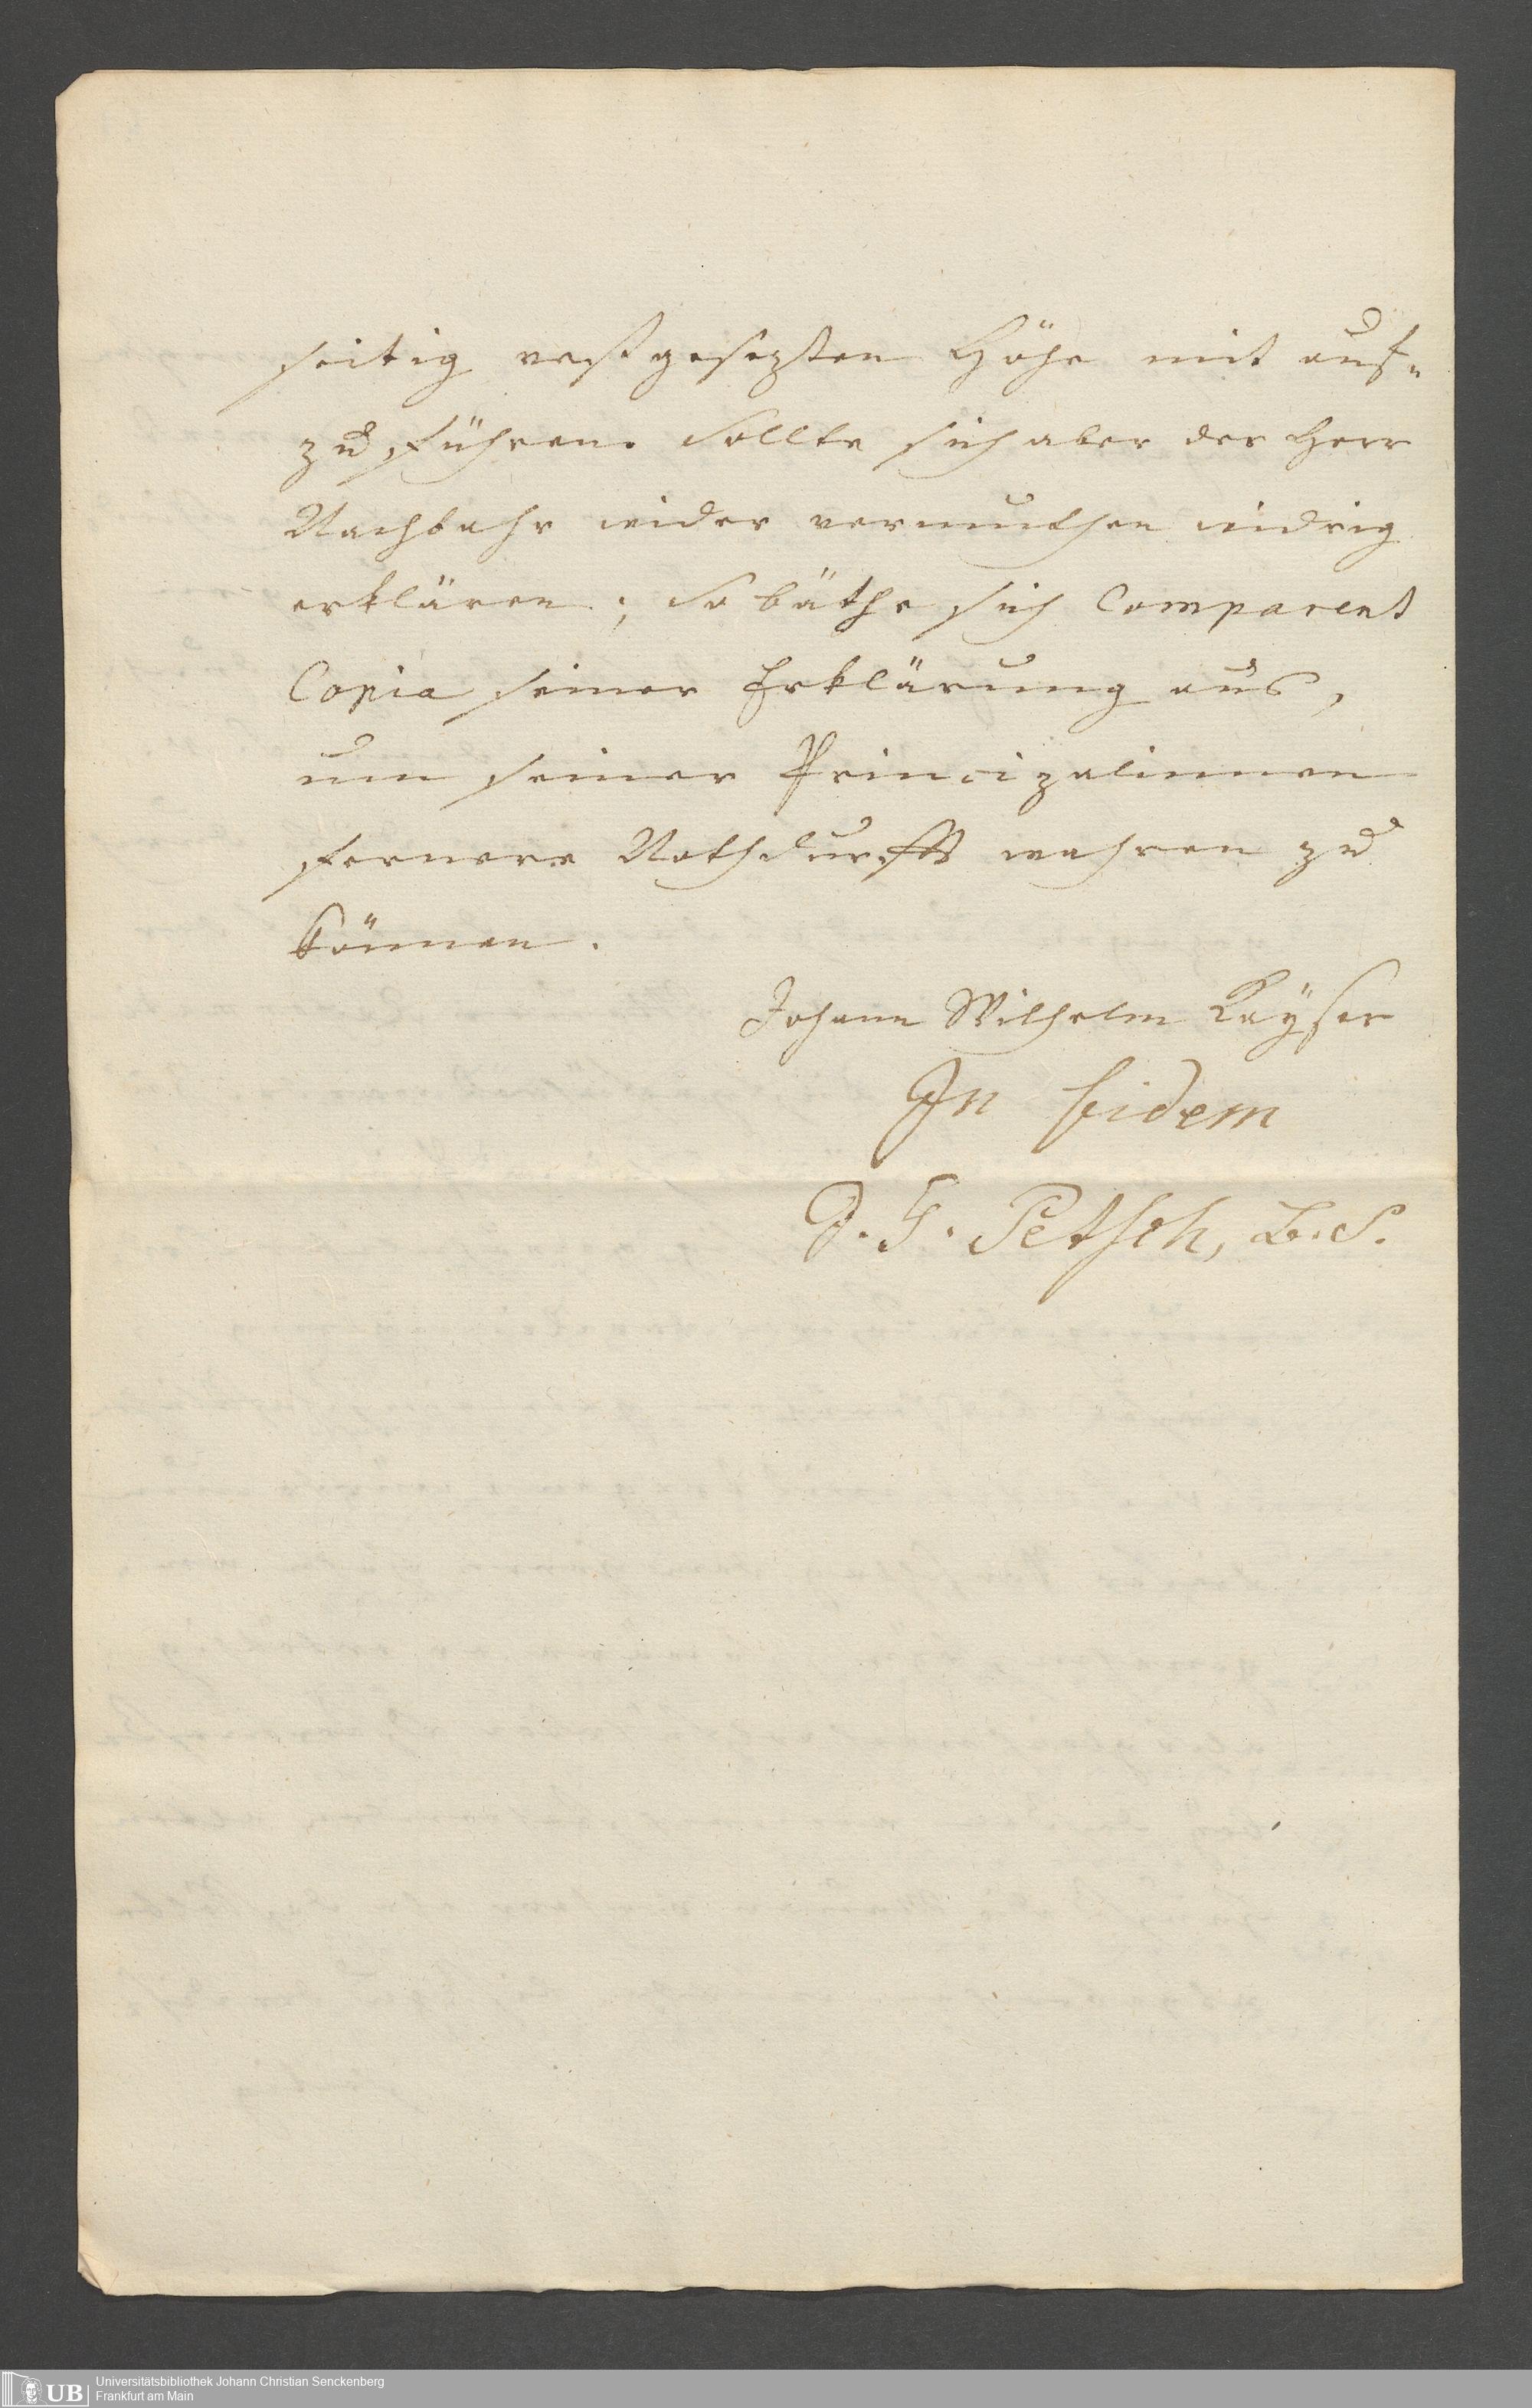 seitig vestgesezten Höhe mit auf-
zu führen. Sollte sich aber der Herr
Nachbahr wider vermuthen widrig
erklären; So bäthe sich Comparent
Copia seiner Erklärung aus,
um seiner Principalinnen
fernere Nothdurfft wahren zu
können.
Johann Wilhelm Kayser
In fidem
J. F. Petsch, B. S.
UB Universitätsbibliothek Johann Christian Senckenberg
Frankfurt am Main